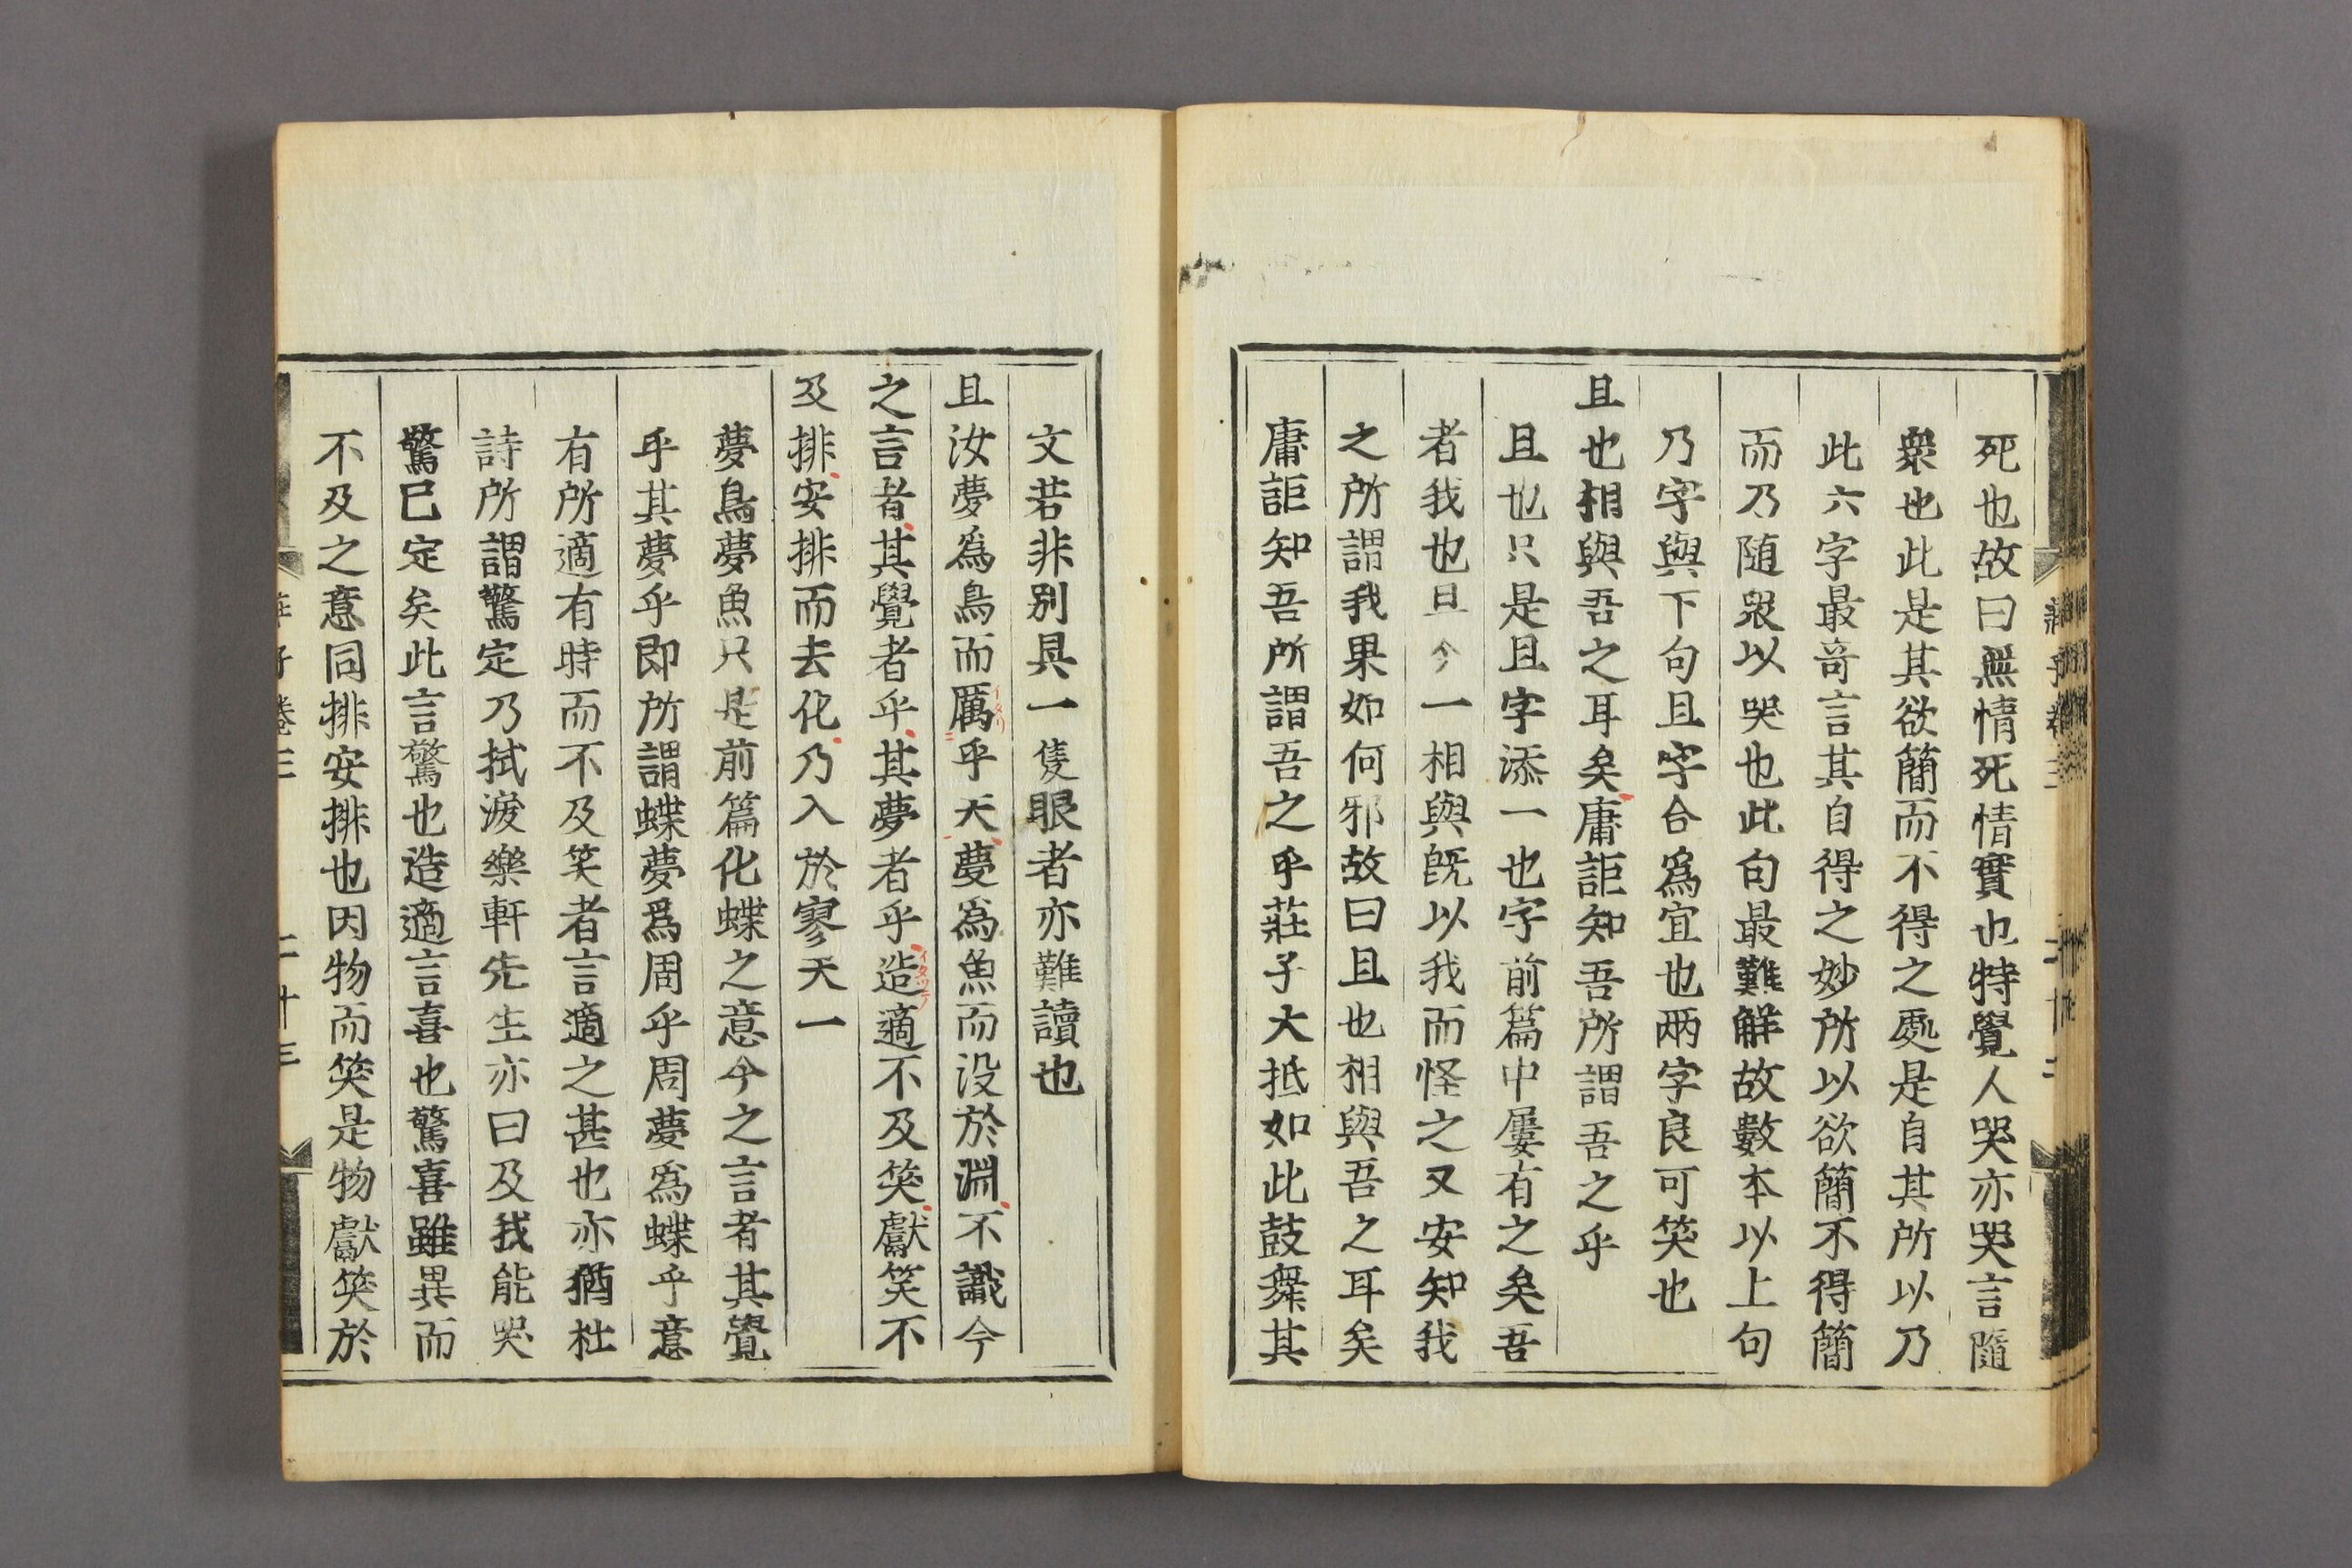 死也故曰無情死情實也特覺人哭亦哭言隨
衆也此是其欲簡而不得之處是自其所以乃
此六字最奇言其自得之妙所以欲簡不得簡
而乃随衆以哭也此句最難解故數本以上句
乃字與下句且字合爲宜也兩字良可笑也
且也相與吾之耳矣庸詎知吾所謂吾之乎
且也只是且字添一也字前篇中屢有之矣吾
者我也且今一相與旣以我而怪之又安知我
之所謂我果如何邪故曰且也相與吾之耳矣
庸詎知吾所謂吾之乎莊子大抵如此鼓舞其
文若非別具一隻眼者亦難讀也
且汝夢爲鳥而厲乎天夢爲魚而没於淵不識今
イタリ
之言者其覺者乎其夢者乎造適不及笑獻笑不
イタツテ
及排安排而去化乃入於寥天一
夢鳥夢魚只是前篇化蝶之意今之言者其覺
乎其夢乎即所謂蝶夢爲周乎周夢爲蝶乎意
有所適有時而不及笑者言適之甚也亦猶杜
詩所謂驚定乃拭淚樂軒先生亦曰及我能哭
驚已定矣此言驚也造適言喜也驚喜雖異而
不及之意同排安排也因物而笑是物獻笑於
子卷三
二十三